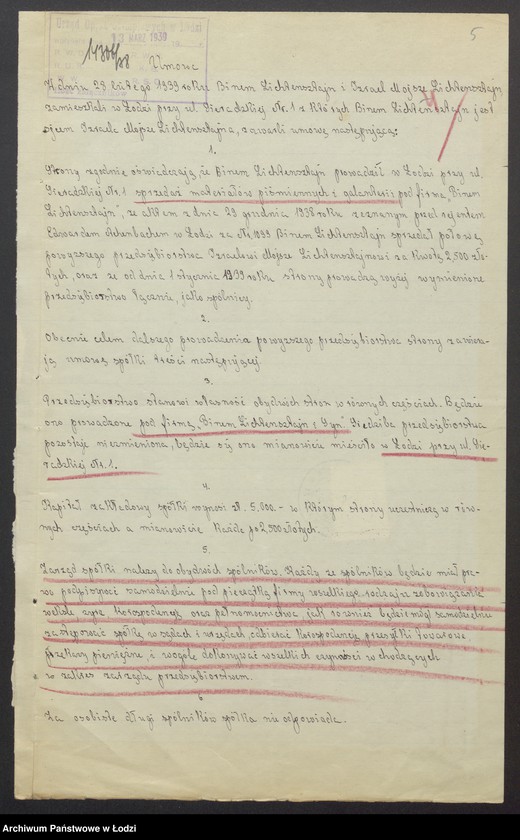 5
Umowa
W dniu 28 lutego 1939 roku Binem Lichtensztajn i Izrael Mojsze Lichtensztajn
zamieszkali w Łodzi przy ul. Sieradzkiej Nr. 1 z których Binem Lichtensztajn jest
ojcem Izraela Mojsze Lichtensztajna, zawarli umowę następującą:
1.
Strony zgodnie oświadczają, że Binem Lichtensztajn prowadził w Łodzi przy ul.
Sieradzkiej Nr. 1 sprzedaż materiałów piśmiennych i galanterii pod firmą "Binem
Lichtensztajn", że aktem z dnia 29 grudnia 1938 roku zeznanym przed rejentem
Edwardem w Łodzi za Nr. 1999 Binem Lichtensztajn sprzedał połowę
powyższego przedsiębiorstwa Izraelowi Mojsze Lichtensztajnowi za kwotę 2.500 zło-
tych, oraz że od dnia 1 stycznia 1939 roku strony prowadzą wyżej wymienione
przedsiębiorstwo łącznie, jako spólnicy.
2.
Obecnie celem dalszego prowadzenia powyższego przedsiębiorstwa strony zawiera-
ją umowę spółki treści następującej.
3.
Przedsiębiorstwo stanowi własność obydwóch stron w równych częściach. Będzie
ono prowadzone pod firmą "Binem Lichtensztajn i Syn". Siedziba przedsiębiorstwa
pozostaje niezmieniona, będzie się ono mianowicie mieściło w Łodzi przy ul. Sie-
radzkiej Nr. 1.
4
Kapitał zakładowy spółki wynosi zł. 5.000.- w którym strony uczestniczą w rów-
nych częściach a mianowicie każde po 2.500 złotych.
5.
Zarząd spółki należy do obydwóch spólników. Każdy ze spólników będzie miał pra-
wo podpisywać samodzielnie pod pieczątką firmy wszelkiego rodzaju zobowiązania
weksle, czeki korespondencję oraz pełnomocnictwa, jak również będzie mógł samodzielnie
zastępować spółkę w sądach i urzędach odbierać korespondencję przesyłki towarowe
przekazy pieniężne, i wogóle dokonywać wszelkich czynności wchodzących
w zakres zarządu przedsiębiorstwem.
6
Za osobiste długi spólników spółka nie odpowiada.
Archiwum Państwowe w Łodzi